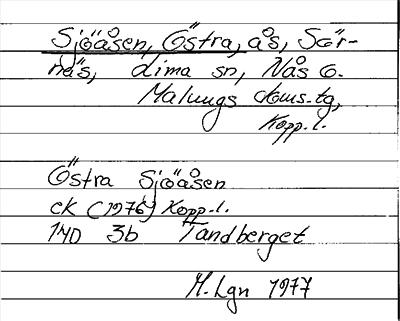 Sjöåsen, Östra, ås, Sör-
näs, Lima sn, Nås o.
Malungs doms.tg,
Kopp.l.
Östra Sjöåsen
ek (1976) Kopp.l.
14D 3b Tandberget
M. Lgn 1977